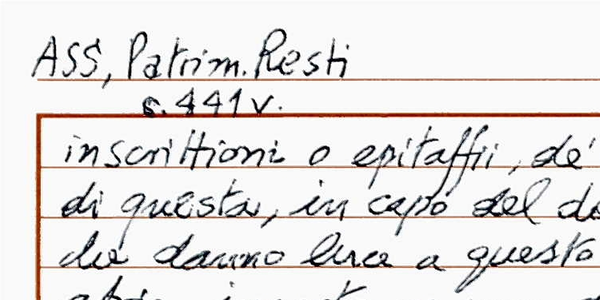 ASS, Patrim. Resti
c. 441v.
inscrittioni o epitaffii, de'
di questa, in capo del
che danno luce a questo